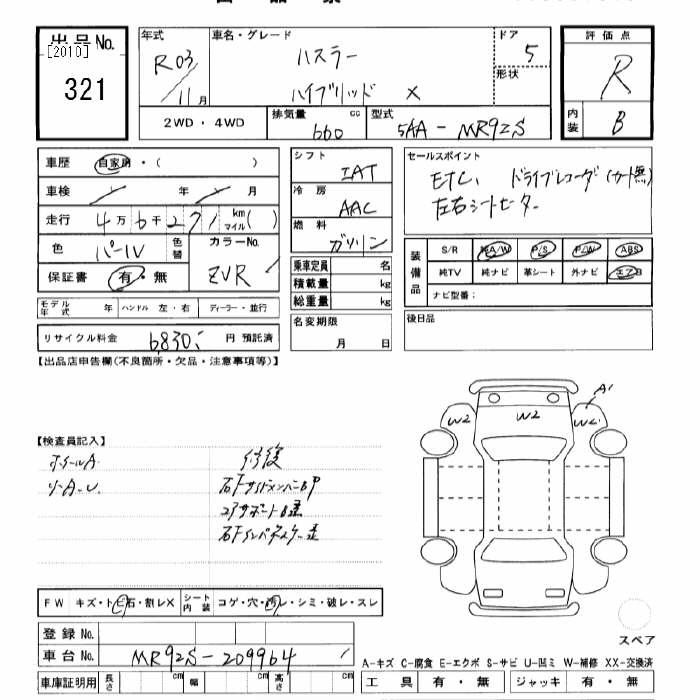 出品No.
[2010]
321
年式
R 03
11月
車名・グレード
ハスラー
ハイブリッド X
ドア
5
形状
評価点
R
内装
B
2WD・4WD
排気量 cc
660
型式
5AA - MR92S
車歴 自家用・( )
車検 年 月
走行 4万6千271 km マイル ( )
色 パール 色替
カラーNo.
ZVR
保証書 有・無
モデル年式 年 ハンドル 左・右 ディーラー・並行
リサイクル料金 6,830 円 預託済
シフト
IAT
冷房
AAC
燃料
ガソリン
乗車定員 名
積載量 kg
総重量 kg
名変期限
月 日
セールスポイント
ETC、ドライブレコーダ(カード無)
左右シートヒーター
装備品
S/R 純A/W P/S P/W ABS
純TV 純ナビ 革シート 外ナビ エアB
ナビ型番:
後日品
【出品店申告欄(不良箇所・欠品・注意事項等)】
【検査員記入】
ホイールA
リーA.U
修復
右Fサイドメンバー
コアサポート
右Fインパネ
A1
W2 W2 W2
FW キズ・トビ石・割レX シート内装 コゲ・穴・汚レ・シミ・破レ・スレ
登録No.
車台No. MR92S-209964
車庫証明用 長さ cm 幅 cm 高さ cm
スペア
A-キズ C-腐食 E-エクボ S-サビ U-凹ミ W-補修 XX-交換済
工具 有・無 ジャッキ 有・無